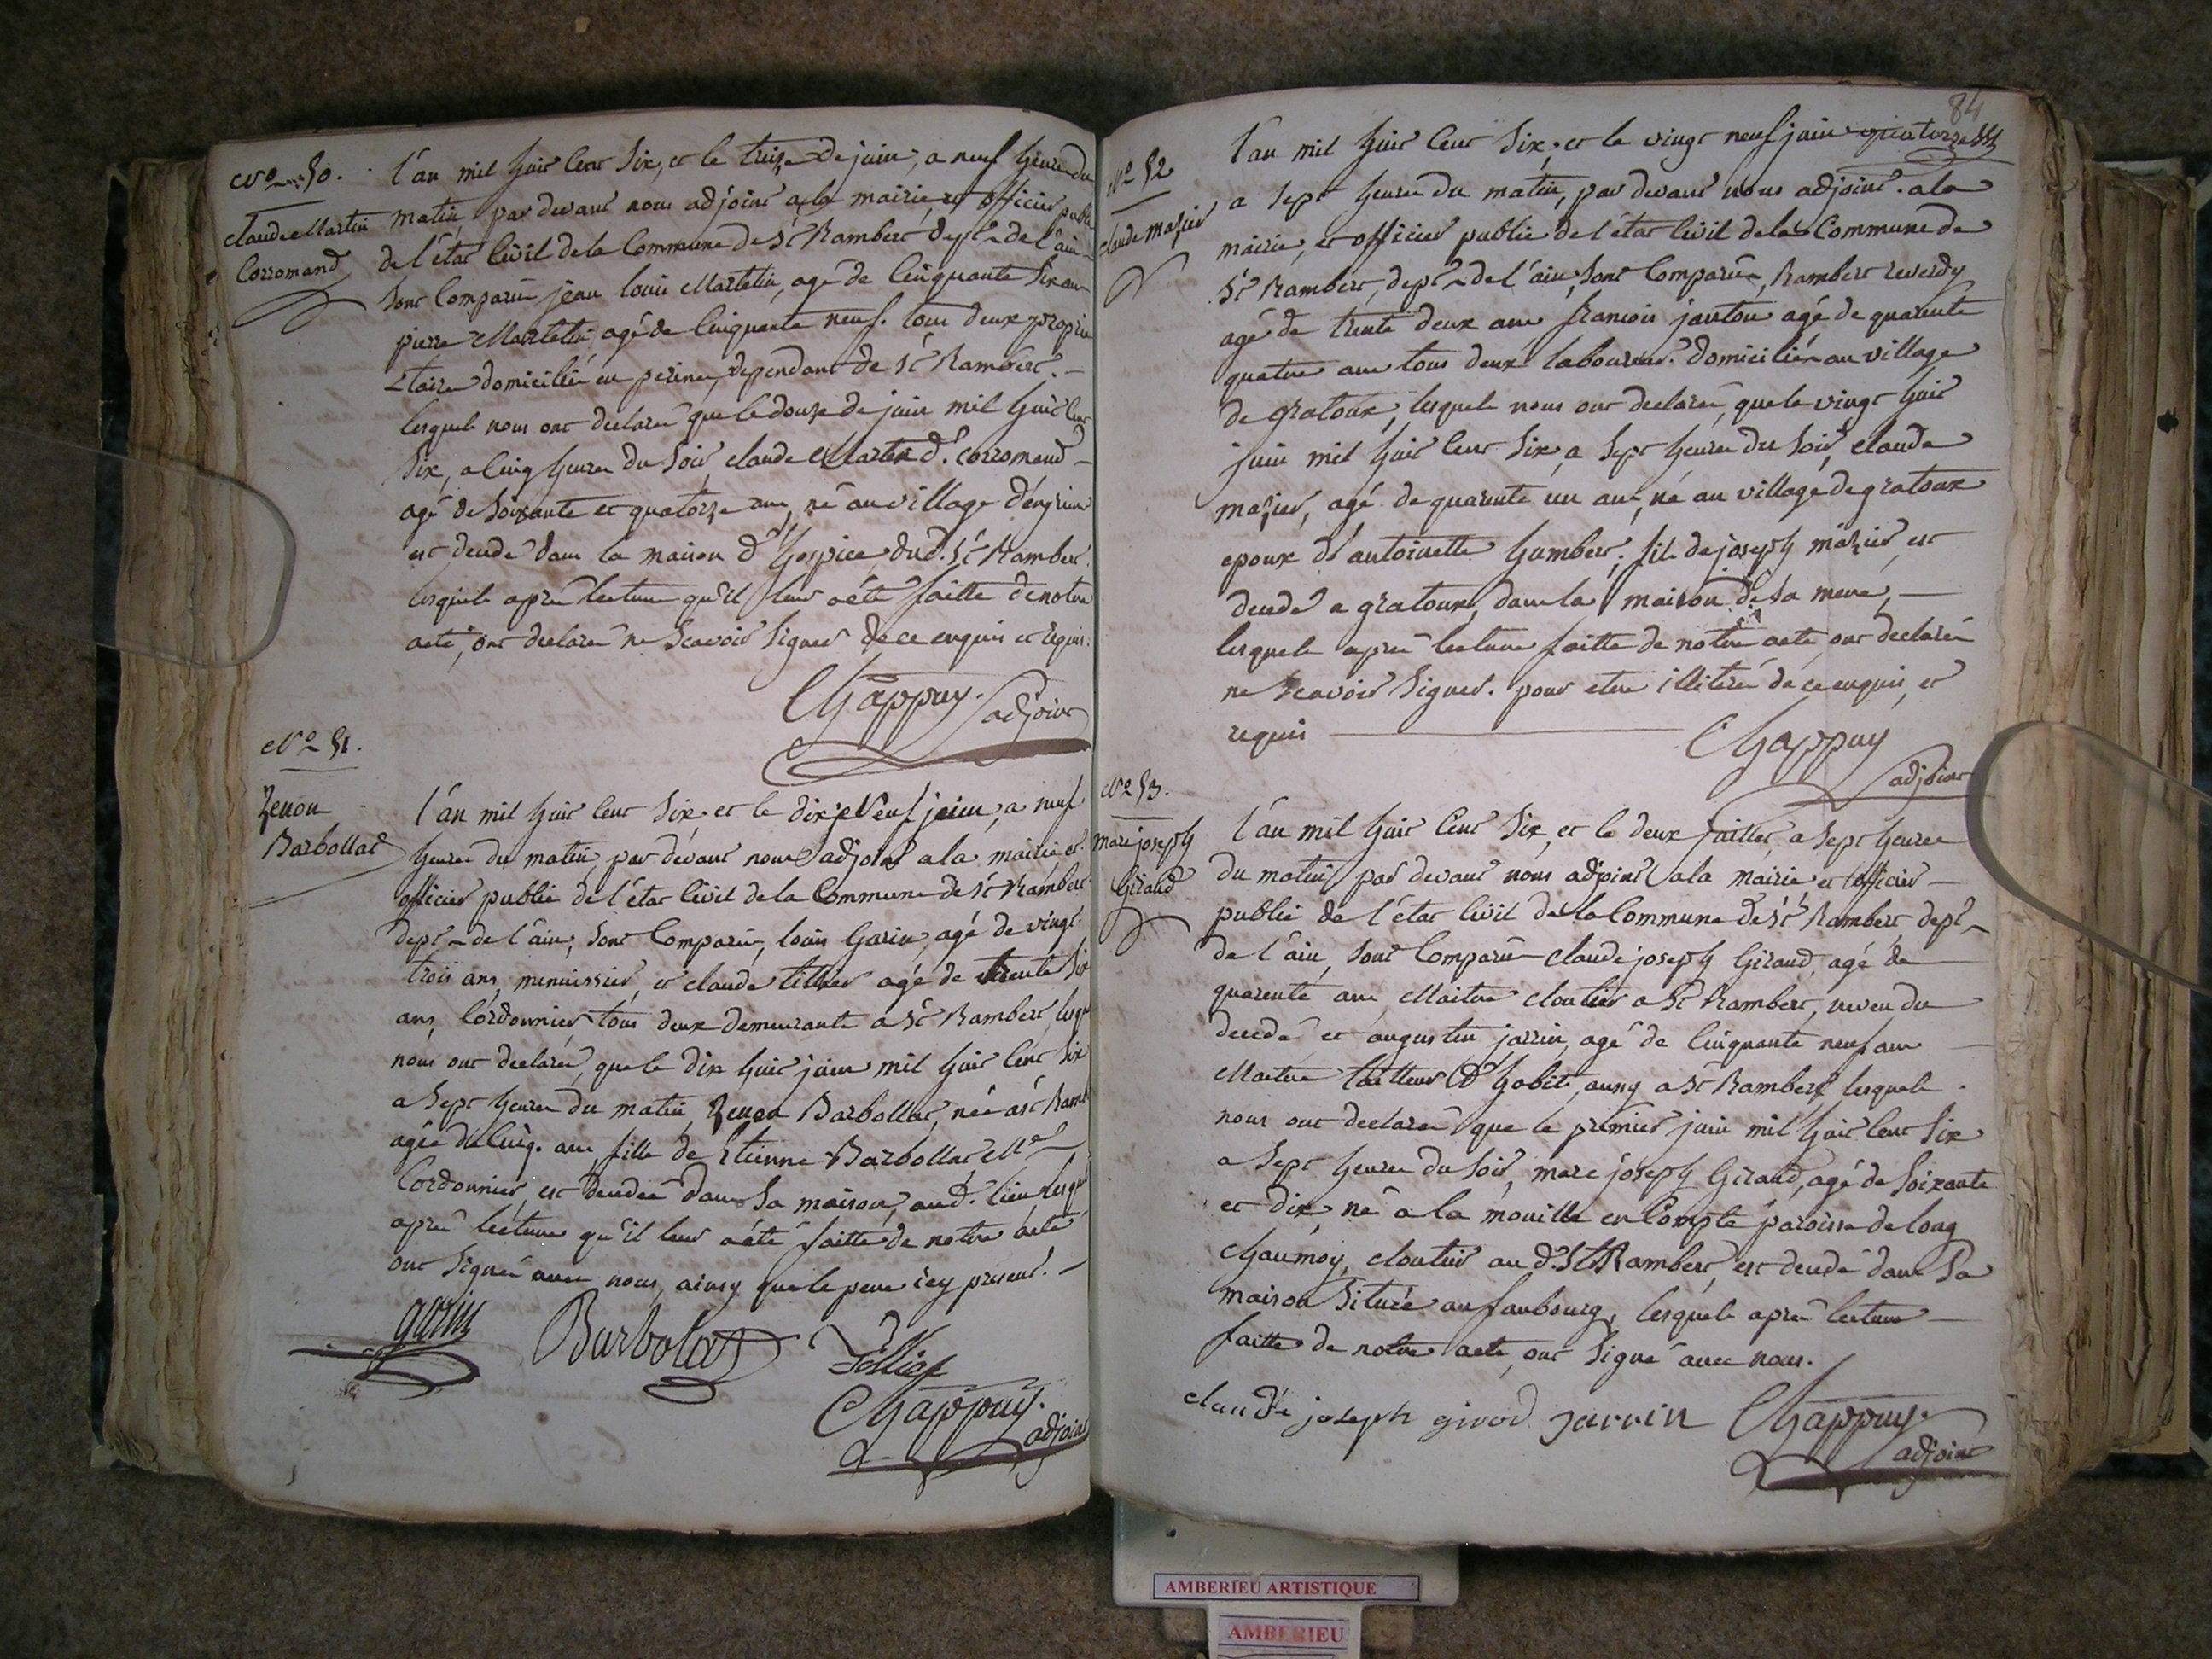 N.o 50.
Claude Martin
Corromand
L'an mil huit cent six, et le treize de juin, a neuf heures du
matin, par devant nous adjoint a la mairie, et officier public
de l'état civil de la Commune de St Rambert dept de l'ain
sont Comparû jean louis Martelin, agé de Cinquante six ans
pierre Martelin, agé de Cinquante neuf. tous deux proprie
-taires domiciliés en dependant de St Rambert. —
lesquels nous ont declaré que le douze de juin mil huit cent
six, a Cinq heures du soir claude Martin dt. corromand —
agé de soixante et quatorze ans, né au village
est decedé dans la maison d'hospice dud. St Rambert.
lesquels après lecture qu'il leur a été faitte de notre
acte, ont declaré ne scavoir signer de ce enquis et requis.
Chappuy.
adjoint
N.o 51.
Zenon
Barbollat
L'an mil huit cent six et le dix Neuf juin, a neuf
heures du matin, par devant nous adjoint a la mairie et
officier public de l'état civil de la Commune de St Rambert
dept de l'ain, sont Comparû, louis Garin, agé de vingt
trois ans, menuissier, et claude tillier agé de trente six
ans, Cordonnier tous deux demeurants a St Rambert, lesquels
nous ont declaré, que le dix huit juin mil huit cent six
a sept heures du matin, Zenon Barbollat, née a St Ramb
agée de Cinq. ans, fille de Etienne Barbollat Me
Cordonnier, est decedée dans sa maison, aud. lieu lesquels
après lecture qu'il leur a été faitte de notre acte
ont signé avec nous, ainsy que le pere icy present. —
garin Barbolat Tillier
Chappuy.
adjoint
84
N.o 52
claude mazier
L'an mil huit cent six, et le vingt neuf juin quatorze
a sept heures du matin, par devant nous adjoint. a la
mairie, et officier public de l'état civil de la Commune de
St Rambert, dept de l'ain, sont Comparû, Rambert reverdy
agé de trente deux ans francois janton agé de quarente
quatre ans tous deux laboureur. domiciliés au village
de gratoux, lesquels nous ont declaré, que le vingt huit
juin mil huit cent six, a sept heures du soir, claude
mazier, agé de quarente un ans, né au village de gratoux
epoux dt antoinette humbert, fils de joseph mazier, est
decedé a gratoux, dans la maison de sa mere, —
lesquels après lecture faitte de notre acte ont declaré
ne scavoir signer. pour etre illiteré de ce enquis, et
requis
Chappuy
adjoint
N.o 53.
marc joseph
Giraud
L'an mil huit cent six, et le deux juillet, a sept heures
du matin, par devant nous adjoint a la mairie et officier —
public de l'état civil de la Commune de St Rambert, dept
de l'ain, sont Comparû claude joseph Giraud, agé de
quarente ans Maitre cloutier a St Rambert, neveu du
decedé et augustin jarrin, agé de Cinquante neuf ans
Maitre tailleur d'habit, a St Rambert, lesquels
nous ont declaré que le premier juin mil huit cent six
a sept heures du soir, marc joseph Giraud, agé de soixante
et dix, né a la mouille en Compté paroisse de long
chaumoy, cloutier au d. St Rambert, est decedé dans sa
maison située au faubourg, lesquels après lecture —
faitte de notre acte, ont signé avec nous.
claude joseph girod jarrin Chappuy.
adjoint
AMBERIEU ARTISTIQUE
AMBERIEU